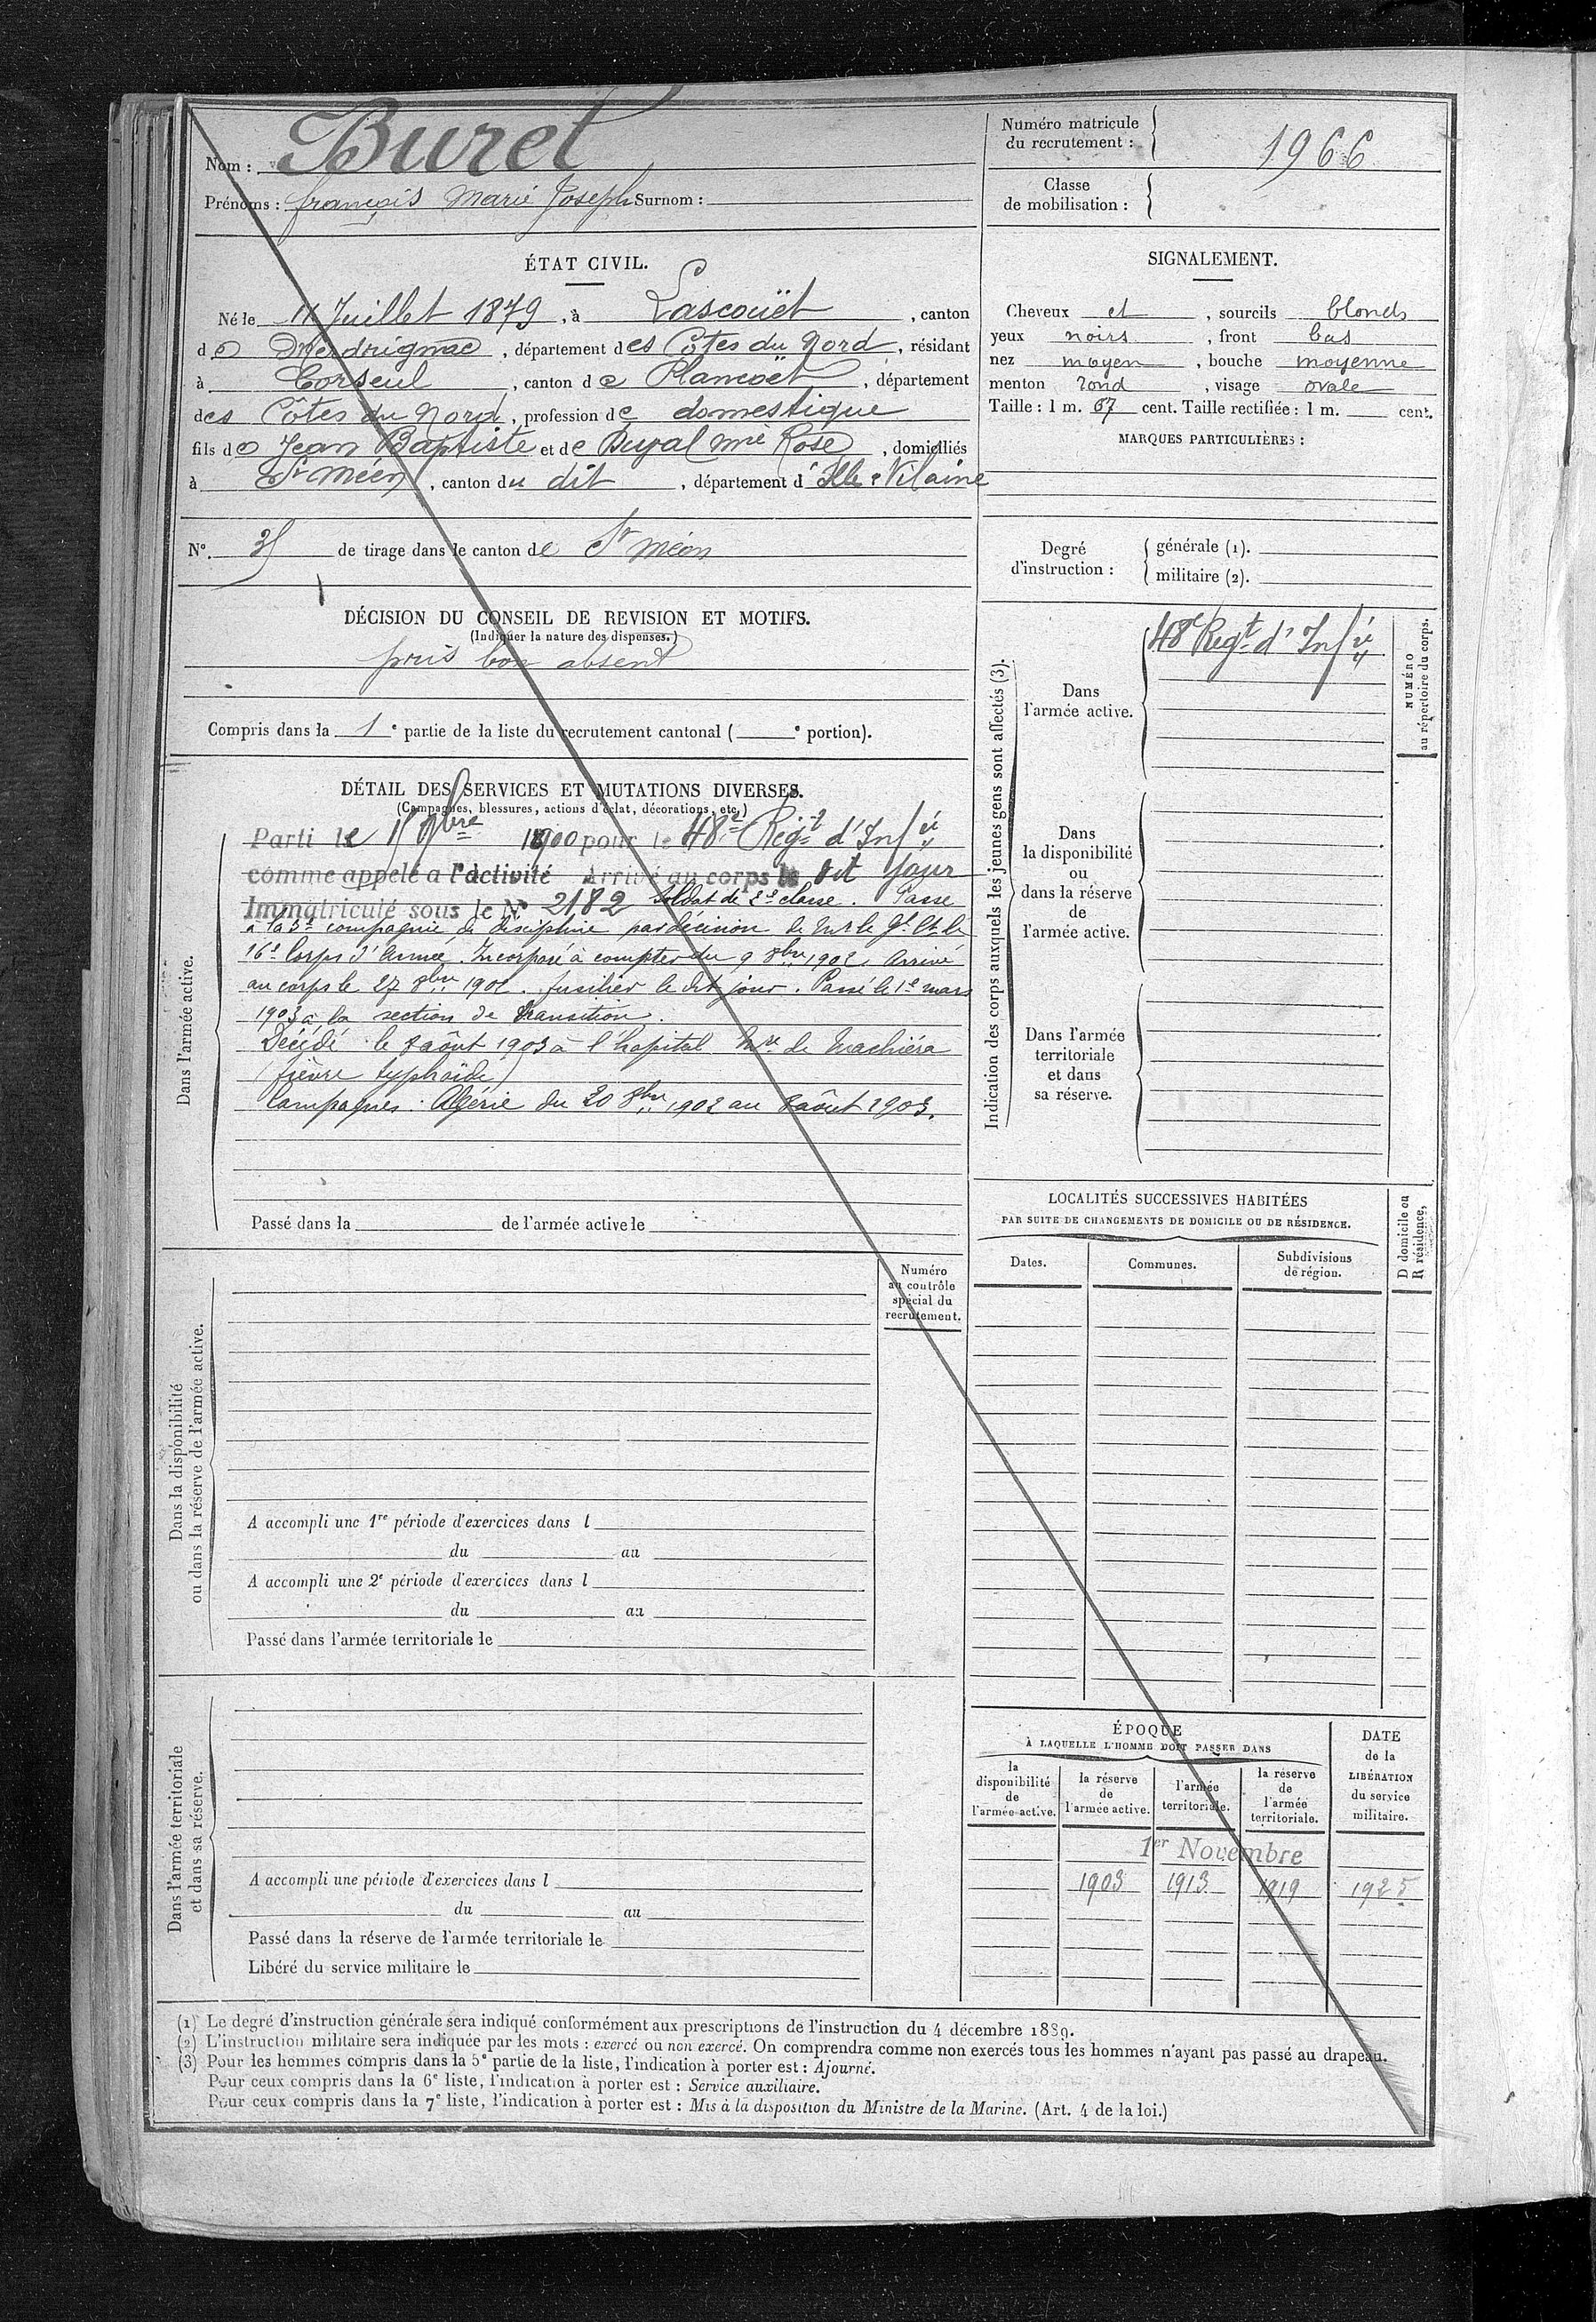 Nom : Buret
Prénoms : françois Marie Joseph Surnom :
Numéro matricule du recrutement : 1966
Classe de mobilisation :
ÉTAT CIVIL.
Né le 11 Juillet 1879, à Lascouët, canton
de Merdrignac, département des Côtes du Nord, résidant
à Corseul, canton de Plancoët, département
des Côtes du Nord, profession de domestique
fils de Jean Baptiste et de Duval Mie Rose, domiciliés
à St Méen, canton du dit, département d'Ille & Vilaine
No. de tirage dans le canton de St Méen
DÉCISION DU CONSEIL DE REVISION ET MOTIFS.
(Indiquer la nature des dispenses.)
pris bon absent
Compris dans la 1e partie de la liste du recrutement cantonal ( e portion).
DÉTAIL DES SERVICES ET MUTATIONS DIVERSES.
(Campagnes, blessures, actions d'éclat, décorations, etc.)
Dans l'armée active.
Parti le 9bre 1900 pour le 48e Régt d'Infie
comme appelé a l'activité Arrivé au corps le dit jour
Immatriculé sous le No 2182 Soldat de 2e classe. Passé
à la 5e compagnie de discipline par décision de Mr le Gl Ct le
16e Corps d'Armée. Incorporé à compter du 9 8bre 1902. Arrivé
au corps le 27 8bre 1902. fusilier le dit jour. Passé le 1e mars
1903 à la section de transition.
Décédé le 8 août 1903 à l'hopital Mre de
(fièvre typhoïde)
Campagnes : Algérie du 20 8bre 1902 au 8 août 1903.
Passé dans la de l'armée active le
Dans la disponibilité
ou dans la réserve de l'armée active.
Numéro
au contrôle
spécial du
recrutement.
A accompli une 1re période d'exercices dans l
du au
A accompli une 2e période d'exercices dans l
du au
Passé dans l'armée territoriale le
Dans l'armée territoriale
et dans sa réserve.
A accompli une période d'exercices dans l
du au
Passé dans la réserve de l'armée territoriale le
Libéré du service militaire le
SIGNALEMENT.
Cheveux et, sourcils blonds
yeux noirs, front bas
nez moyen, bouche moyenne
menton rond, visage ovale
Taille : 1 m. 67 cent. Taille rectifiée : 1 m. cent.
MARQUES PARTICULIÈRES :
Degré d'instruction :
générale (1).
militaire (2).
Indication des corps auxquels les jeunes gens sont affectés (3).
NUMÉRO
au répertoire du corps.
48e Régt d'Infie
Dans
l'armée active.
Dans
la disponibilité
ou
dans la réserve
de
l'armée active.
Dans l'armée
territoriale
et dans
sa réserve.
LOCALITÉS SUCCESSIVES HABITÉES
PAR SUITE DE CHANGEMENTS DE DOMICILE OU DE RÉSIDENCE.
D domicile ou
R résidence,
Dates. Communes. Subdivisions de région.
ÉPOQUE
À LAQUELLE L'HOMME DOIT PASSER DANS
la disponibilité de l'armée active.
la réserve de l'armée active.
l'armée territoriale.
la réserve de l'armée territoriale.
DATE de la LIBÉRATION du service militaire.
1er Novembre
1903 1913 1919 1925
(1) Le degré d'instruction générale sera indiqué conformément aux prescriptions de l'instruction du 4 décembre 1889.
(2) L'instruction militaire sera indiquée par les mots : exercé ou non exercé. On comprendra comme non exercés tous les hommes n'ayant pas passé au drapeau.
(3) Pour les hommes compris dans la 5e partie de la liste, l'indication à porter est : Ajourné.
Pour ceux compris dans la 6e liste, l'indication à porter est : Service auxiliaire.
Pour ceux compris dans la 7e liste, l'indication à porter est : Mis à la disposition du Ministre de la Marine. (Art. 4 de la loi.)